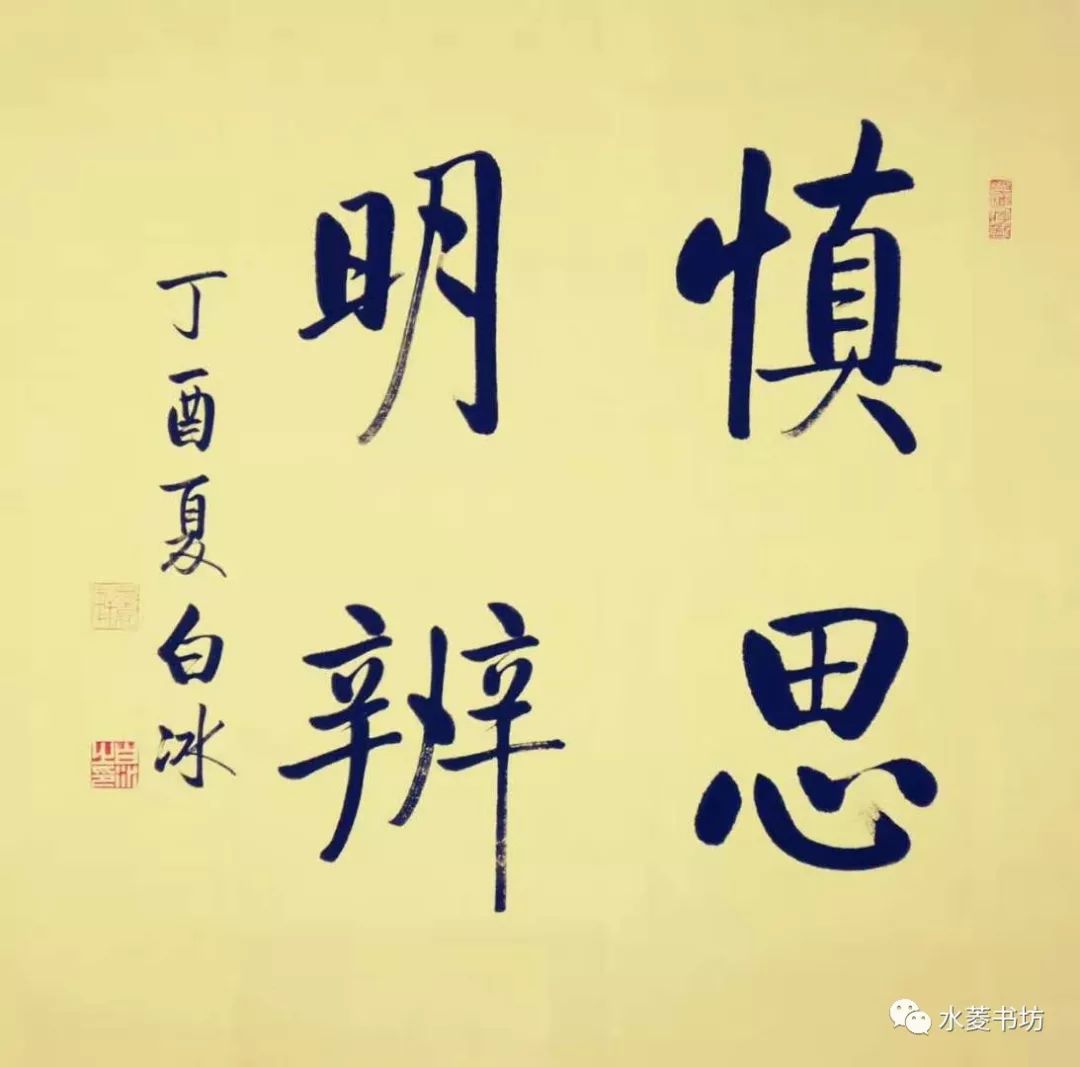 慎思
明辨
丁酉夏白冰
水菱书坊